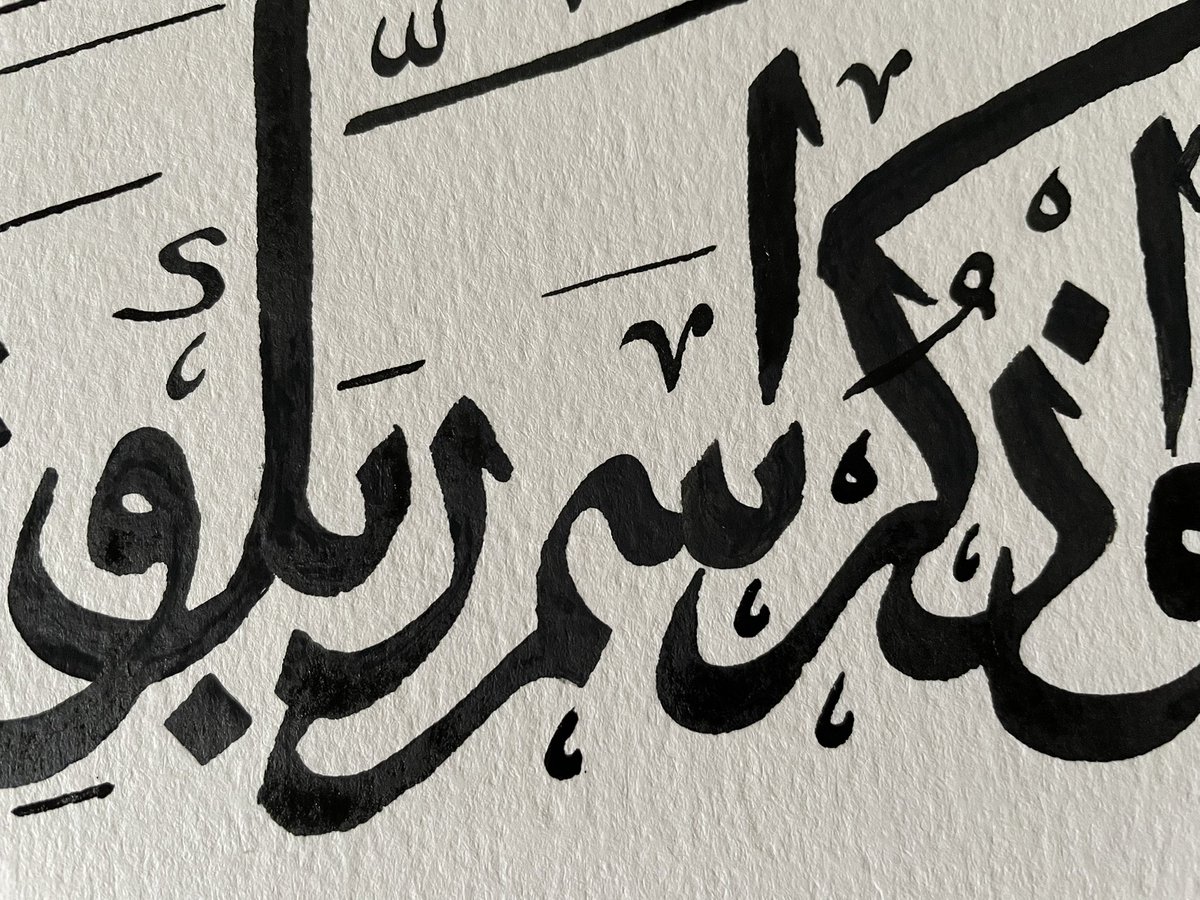 واذكر اسم ربك و